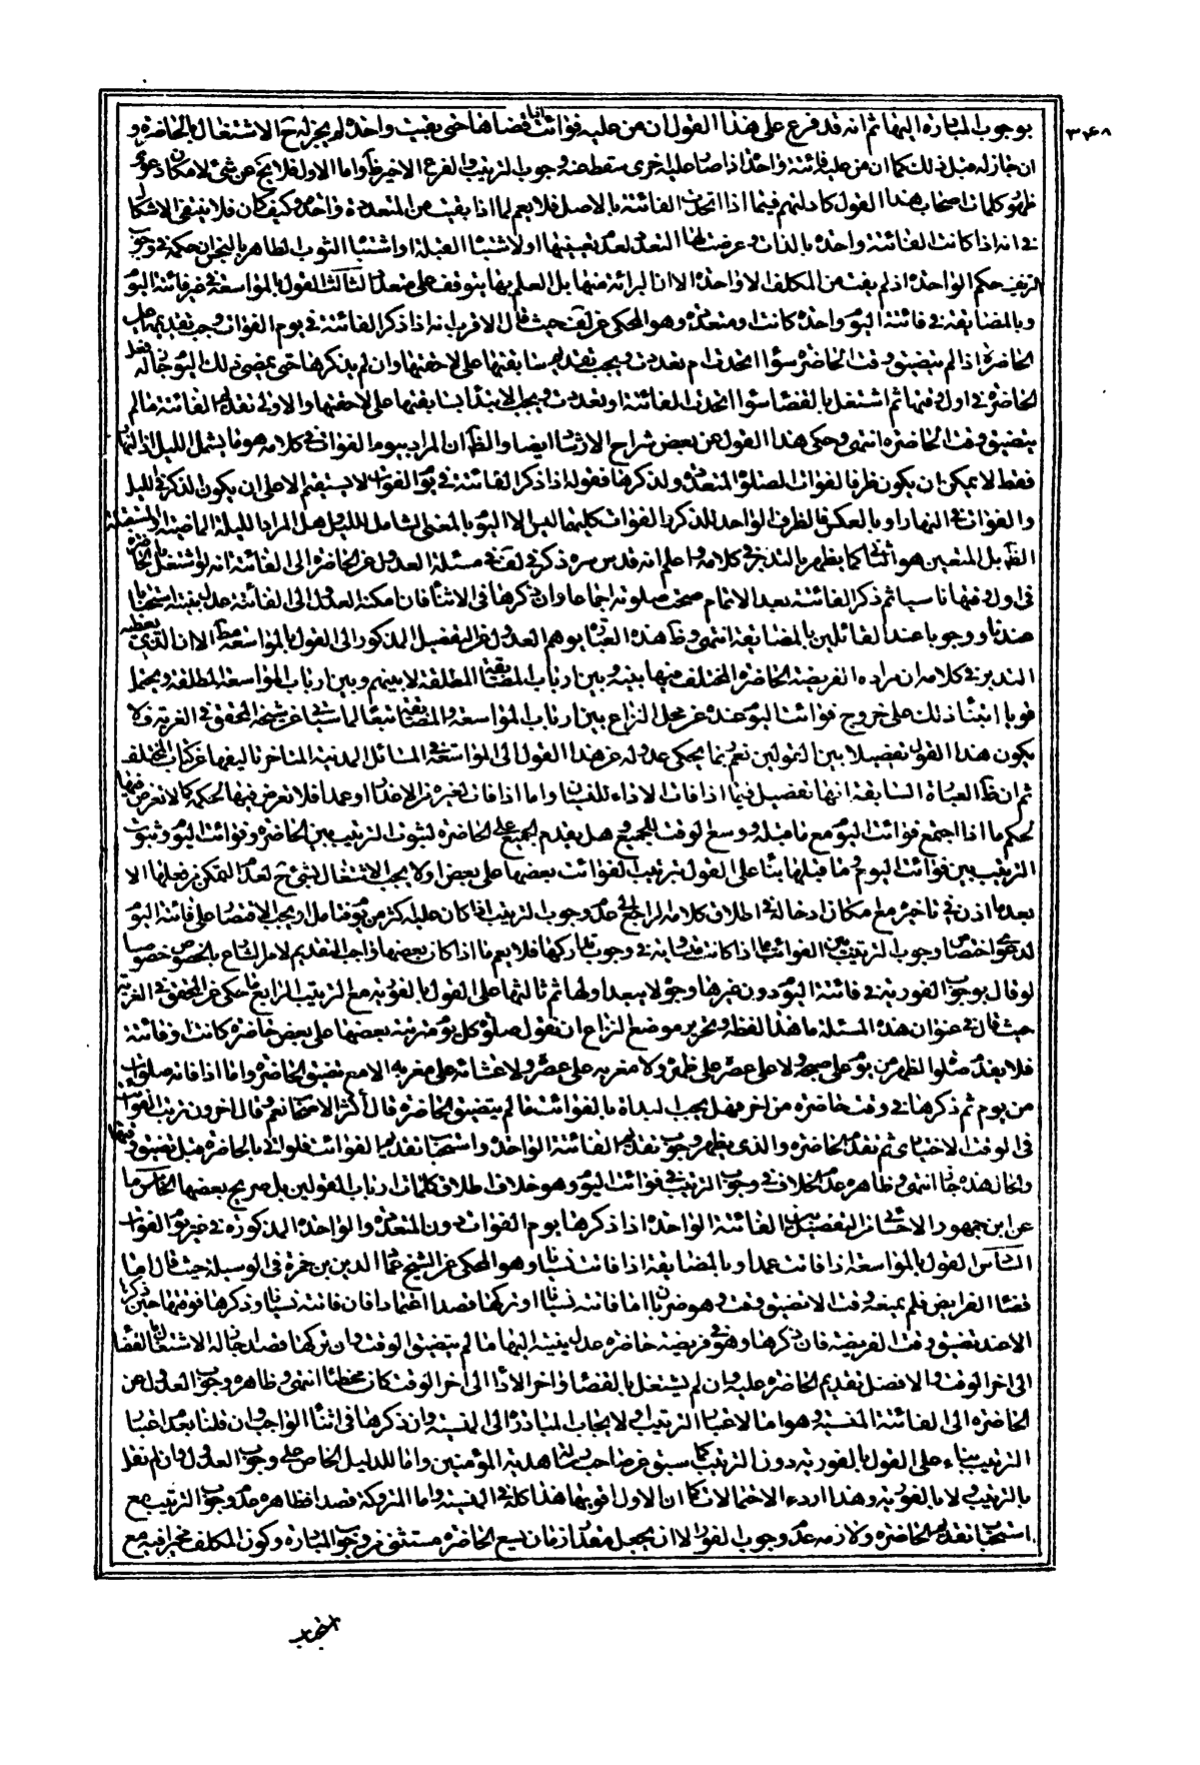 ٣٤٨
بوجوب المبادرة اليها ثم انه قد فرع على هذا القول ان من عليه فوائت اذا قضاها حتى بقيت واحدة لم يجز له ح الاشتغال بالحاضرة و
ان جاز له قبل ذلك كما ان من عليه فائتة واحدة اذا صار عليه اخرى سقط عنه وجوب الترتيب والفرع الاخير ظاهر واما الاول فلا يخ عن شئ لامكان دعوى
ظهور كلمات اصحاب هذا القول كادلتهم فيما اذا اتحدت الفائتة بالاصل فلا يعم لما اذا بقيت من المتعددة واحدة وكيف كان فلا ينبغى الاشكال
فى انه اذا كانت الفائتة واحدة بالذات وعرضت لها التعدد لعدم تعيينها او لاشتباه القبلة او اشتباه الثوب الطاهر بالنجس ان حكمه فى وجوب
الترتيب حكم الواحدة اذ لم يفت من المكلف الا واحدة الا ان البرائة منها بل العلم بها يتوقف على متعدد الثالث القول بالمواسعة فى غير فائتة اليوم
وبالمضايقة فى فائتة اليوم واحدة كانت او متعددة وهو المحكى عن لف حيث قال الاقرب انه اذا ذكر الفائتة فى يوم الفوات وجب تقديمها على
الحاضرة اذا لم يتضيق وقت الحاضرة سواء اتحدت ام تعددت ويجب تقديم سابقتها على لاحقتها وان لم يذكرها حتى يمضى ذلك اليوم جاز له فعل
الحاضرة فى اول وقتها ثم اشتغل بالقضاء سواء اتحدت الفائتة او تعددت ويجب الابتداء بسابقتها على لاحقتها والاولى تقديم الفائتة ما لم
يتضيق وقت الحاضرة انتهى وحكى هذا القول عن بعض شراح الارشاد ايضا والظ ان المراد بيوم الفوات فى كلامه هو ما يشمل الليل اذ النهار
فقط لا يمكن ان يكون ظرفا لفوات الصلوة المتعددة ولذكرها فقوله اذا ذكر الفائتة فى يوم الفوات لا يستقيم الا على ان يكون الذكر فى الليل
والفوات فى النهار او بالعكس فالظرف الواحد للذكر والفوات كليهما ليس الا اليوم بالمعنى الشامل لليل وهل المراد الليلة الماضية او المستقبلة
الظ بل المتعين هو الثانى كما يظهر بالتدبر فى كلامه واعلم انه قدس سره ذكر فى لف فى مسئلة العدول عن الحاضرة الى الفائتة انه لو اشتغل بالحاضرة
فى اول وقتها ناسيا ثم ذكر الفائتة بعد الاتمام صحت صلوته اجماعا وان ذكرها فى الاثناء فان امكنه العدول الى الفائتة عدل بنيته استحبابا
عندنا ووجوبا عند القائلين بالمضايقة انتهى وظ هذه العبارة يوهم العدول عن التفصيل المذكور الى القول بالمواسعة مط الا ان الذى يعطيه
التدبر فى كلامه ان مراده الفريضة الحاضرة المختلف فيها بينه وبين ارباب المضايقة المطلقة لا بينهم وبين ارباب المواسعة المطلقة ويحتمل
قويا ابتناء ذلك على خروج فوائت اليوم عنده عن محل النزاع بين ارباب المواسعة والمضايقة تبعا لما سيأتى عن شيخه المحقق فى العزية فلا
يكون هذا القول تفصيلا بين القولين نعم ربما يحكى عدوله عن هذا القول الى المواسعة فى المسائل المدنية المتاخر تاليفها عن كتاب المختلف
ثم ان ظ العبارة السابقة انها تفصيل فيما اذا فات الاداء للنسيان واما اذا فات لغيره من الاعذار او عمدا فلا تعرض فيها لحكمه كما لا تعرض فيها
لحكم ما اذا اجتمع فوائت اليوم مع ما قبله ووسع الوقت للجميع وهل يقدم الجميع على الحاضرة لثبوت الترتيب بين الحاضرة وفوائت اليوم وثبوت
الترتيب بين فوائت اليوم وما قبلها بناء على القول بترتيب الفوائت بعضها على بعض او لا يجب الاشتغال بشئ ح لعدم التمكن من فعلها الا
بعد ما اذن فى تاخيره مع امكان ادخاله فى اطلاق كلامه الراجع الى عدم وجوب الترتيب اذا كان عليه اكثر من يوم فتامل او يجب الاقتصار على فائتة اليوم
لدعوى اختصاص وجوب الترتيب بين الفوائت بما اذا كانت متساوية فى وجوب تداركها فلا يعم ما اذا كان بعضها واجب التقديم لامر الشارع بالخصوص خصوصا
لو قال بوجوب الفورية فى فائتة اليوم دون غيرها وجوه لا يبعد اولها ثم ثالثها على القول بالفورية مع الترتيب الرابع ما حكى عن المحقق فى العزية
حيث قال فى عنوان هذه المسئلة ما هذا لفظه وتحرير موضع النزاع ان نقول صلوة كل يوم مترتبة بعضها على بعض حاضرة كانت او فائتة
فلا يقدم صلوة الظهر من يوم على صبحه ولا على عصره على ظهره ولا مغربه على عصره ولا عشائه على مغربه الا مع تضيق الحاضرة واما اذا فاته صلوات
من يوم ثم ذكرها فى وقت حاضرة من اخر فهل يجب البداة بالفوائت ما لم يتضيق الحاضرة قال اكثر الاصحاب نعم وقال اخرون ترتب الفوائت
فى الوقت الاختيارى ثم تقدم الحاضرة والذى يظهر وجوب تقديم الفائتة الواحدة واستحباب تقديم الفوائت فلو اتى بالحاضرة قبل تضيق وقتها
والحال هذه جاز انتهى وظاهره عدم الخلاف فى وجوب الترتيب فى فوائت اليوم وهو خلاف اطلاق كلمات ارباب القولين بل صريح بعضها الخامس ما
عن ابن جمهور الاحسائى من التفصيل بين الفائتة الواحدة اذا ذكرها يوم الفوات دون المتعددة والواحدة المذكورة فى غير يوم الفوات
السادس القول بالمواسعة اذا فاتت عمدا وبالمضايقة اذا فاتت نسيانا وهو المحكى عن الشيخ عماد الدين بن حمزة فى الوسيلة حيث قال اما
قضاء الفرايض فلم يمنعه وقت الا تضيق وقت وهو ضربان اما فاتته نسيانا او تركها قصدا اعتمادا فان فاتته نسيانا وذكرها فوقتها حين ذكرها
الا عند تضيق وقت الفريضة فان ذكرها وهو فى فريضة حاضرة عدل بنيته اليها ما لم يتضيق الوقت وان تركها قصدا جاز له الاشتغال بالقضاء
الى اخر الوقت والافضل تقديم الحاضرة عليه وان لم يشتغل بالقضاء واخر الاداء الى اخر الوقت كان مخطئا انتهى وظاهره وجوب العدول عن
الحاضرة الى الفائتة المنسية وهو اما لاعتبار الترتيب او لايجاب المبادرة الى المنسية وان ذكرها فى اثناء الواجب وان قلنا بعدم اعتبار
الترتيب بناء على القول بالفورية دون الترتيب كما سبق عن صاحب هدية المؤمنين واما للدليل الخاص على وجوب العدول وان لم نقل
بالترتيب ولا بالفورية وهذا اردء الاحتمالات كما ان الاول اقويها هذا كله فى المنسية واما المتروكة قصدا فظاهره عدم وجوب الترتيب مع
استحباب تقديم الحاضرة ولازمه عدم وجوب الفور الا ان يجعل مقدار زمان يسع الحاضرة مستثنى من وجوب المبادرة وكون المكلف مخيرا فيه مع